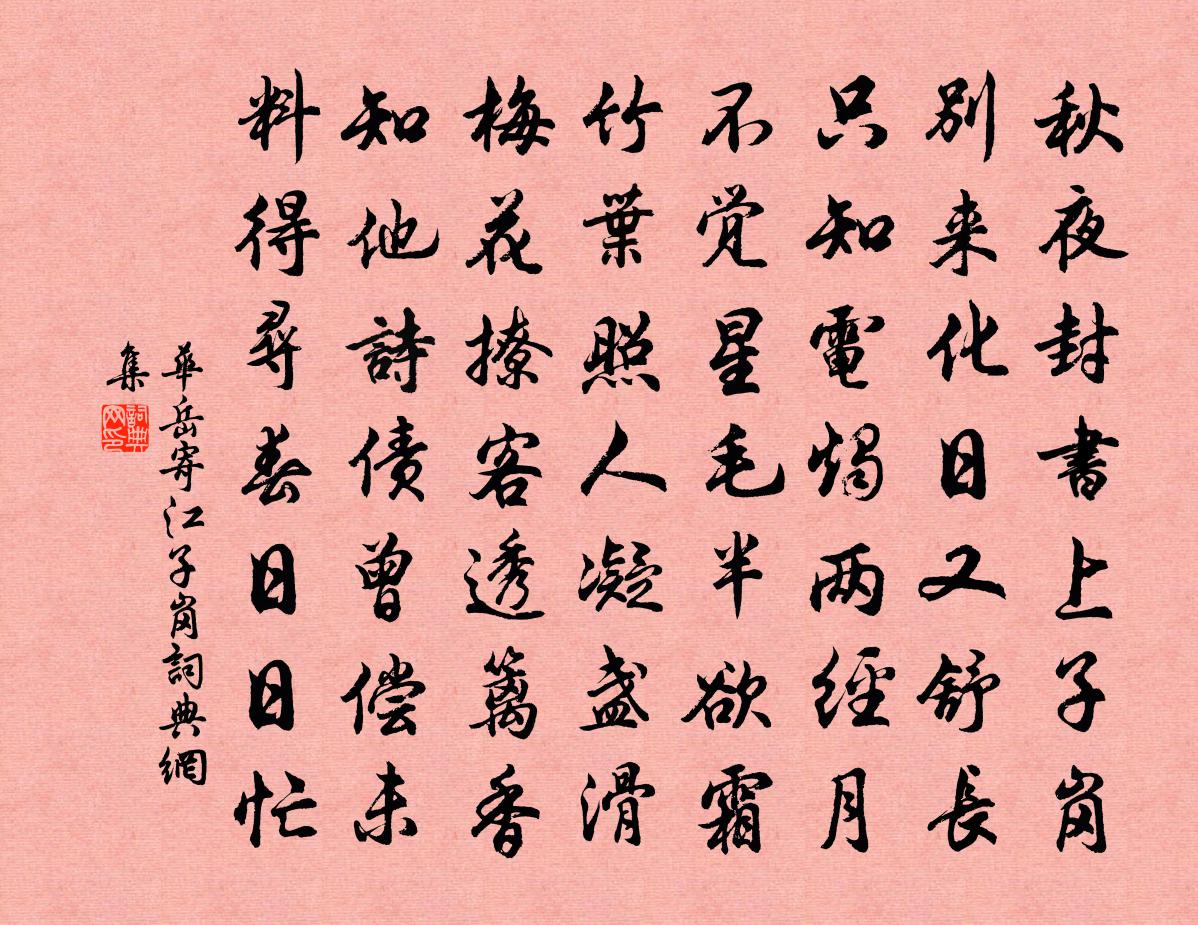 秋夜封書上子崗
別来化日又舒長
只知電燭两經月
不覚星毛半欲霜
竹葉照人凝盏滑
梅花撩客透篱香
知他詩债曾偿未
料得尋春日日忙
華岳寄江子崗詞典網
集
詞典
网印